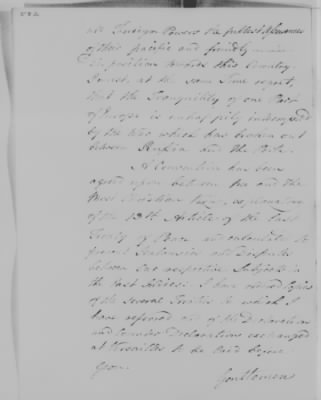 all Foreign Powers the fullest Assurances
of their pacific and friendly
Disposition towards this Country.
I must, at the same Time regret,
that the Tranquility of one Part
of Europe is unhappily interrupted
by the War which has broken out
between Russia and the Porte.
A Convention has been
agreed upon between me and the
Most Christian King, explanatory
of the 13th Article of the last
Treaty of Peace and calculated to
prevent Jealousies and Disputes
between our respective Subjects in
the East Indies. I have ordered Copies
of the several Treaties to which I
have referred and of the Declaration
and Counter Declaration exchanged
at Versailles to be laid before
You.
Gentlemen